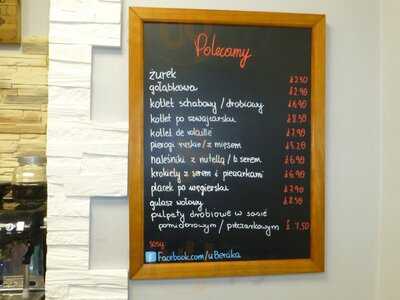 Polecamy
żurek £2.50
gołąbkowa £2.90
kotlet schabowy / drobiowy £6.90
kotlet po szwajcarsku £8.50
kotlet de volaille £7.90
pierogi ruskie / z mięsem £5.20
naleśniki z nutellą / z serem £6.90
krokiety z serem i pieczarkami £6.90
placek po węgiersku £7.90
gulasz wołowy £8.50
pulpety drobiowe w sosie
pomidorowym / pieczarkowym £ 7,50
sosy:
Facebook.com/uBeraka